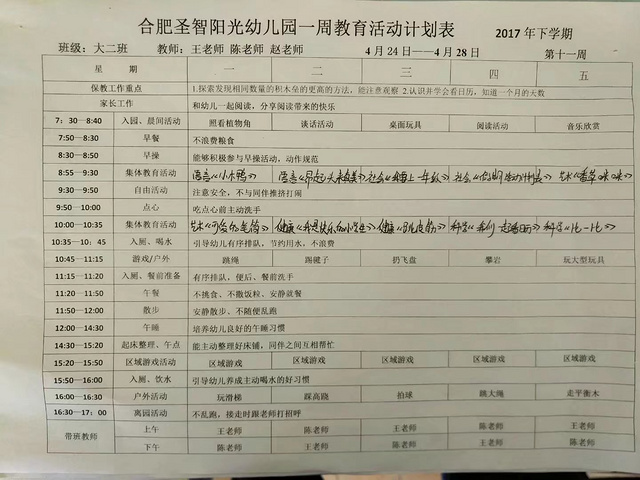 合肥圣智阳光幼儿园一周教育活动计划表 2017 年下学期
班级：大二班 教师：王老师 陈老师 赵老师 4 月 24 日——4 月 28 日 第十一周
星 期 一 二 三 四 五
保教工作重点 1.探索发现相同数量的积木垒的更高的方法，能注意观察 2.认识并学会看日历，知道一个月的天数
家长工作 和幼儿一起阅读，分享阅读带来的快乐
7：30—8:40 入园、晨间活动 照看植物角 谈话活动 桌面玩具 阅读活动 音乐欣赏
7:50—8:30 早餐 不浪费粮食
8:30—8:50 早操 能够积极参与早操活动，动作规范
8:55—9:30 集体教育活动 语言《小木鸭》 语言 社会 社会 艺术
9:30—9:50 自由活动 注意安全，不与同伴推挤打闹
9:50—10:00 点心 吃点心前主动洗手
10:00—10:35 集体教育活动 艺术 健康 健康 科学 科学《比一比》
10:35—10：45 入厕、喝水 引导幼儿有序排队，节约用水，不浪费
10:45—11:15 游戏/户外 跳绳 踢毽子 扔飞盘 攀岩 玩大型玩具
11:15—11:20 入厕、餐前准备 有序排队，便后、餐前洗手
11:20—11:50 午餐 不挑食、不撒饭粒、安静就餐
11:50—12:00 散步 安静散步、不随便乱跑
12:00—14:30 午睡 培养幼儿良好的午睡习惯
14:30—15:20 起床整理、午点 能主动整理好床铺，同伴之间互相帮忙
15:20—15:50 区域游戏活动 区域游戏 区域游戏 区域游戏 区域游戏 区域游戏
15:50—16:00 入厕、饮水 引导幼儿养成主动喝水的好习惯
16:00—16:30 户外活动 玩滑梯 踩高跷 拍球 跳大绳 走平衡木
16:30—17：00 离园活动 不乱跑，接走时跟老师打招呼
带班教师 上午 王老师 陈老师 王老师 陈老师 王老师
下午 陈老师 王老师 陈老师 王老师 陈老师